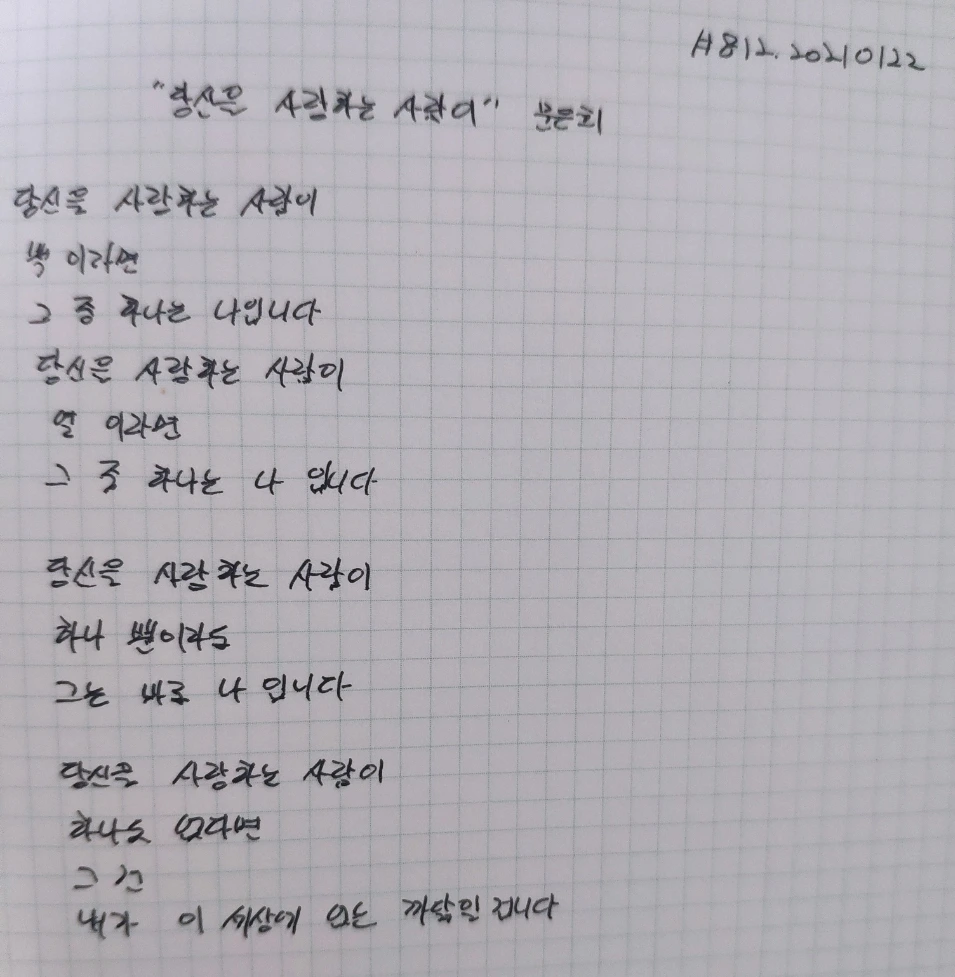 #812. 20210122
"당신을 사랑하는 사람이" 문은희
당신을 사랑하는 사람이
백 이라면
그 중 하나는 나입니다
당신을 사랑하는 사람이
열 이라면
그 중 하나는 나 입니다
당신을 사랑하는 사람이
하나 뿐이라도
그는 바로 나 입니다
당신을 사랑하는 사람이
하나도 없다면
그 건
내가 이 세상에 없는 까닭일 겁니다